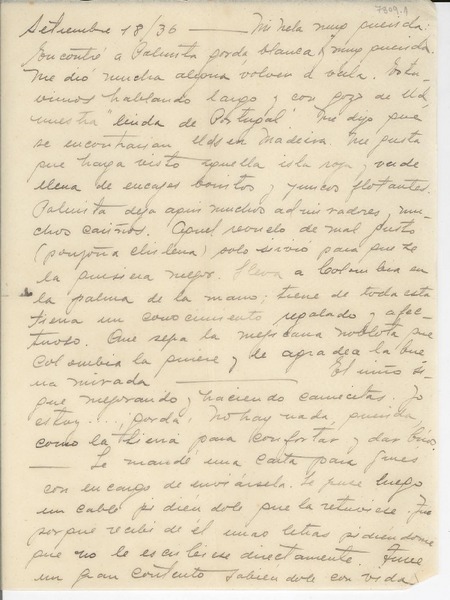 7809.1
Setiembre 18/36 — Mi Nela muy querida:
Encontré a Palmita gorda, blanca y muy querida.
Me dió mucha alegria volver a verla. Estu-
vimos hablando largo y con gozo de Ud,
nuestra "linda de Portugal". Me dijo que
se encontrarian Uds en Madeira. Me gusta
que haya visto aquella isla roja, verde
llena de encajes bonitos y juncos flotantes.
Palmita deja aqui muchos admiradores, mu-
chos cariños. Aquel revuelo de mal gusto
(ponzoña chilena) solo sirvió para que se
la quisiera mejor. Lleva a Colombia en
la palma de la mano; tiene de toda esta
tierra un conocimiento regalado y afec-
tuoso. Que sepa la mejicana noblota que
Colombia la quiere y le agradece la bue-
na mirada — El niño si-
gue mejorando y haciendo camisetas. Yo
estoy...., gorda! No hay nada, querida
como la tierra para confortar y dar brio.
— Le mandé una carta para
con encargo de enviársela. Le puse luego
un cable pidiéndole que la retuviese. Fue
porque recibi de él unas letras pidiéndome
que no le escribiese directamente. Tuve
un gran contento sabiendole con vida